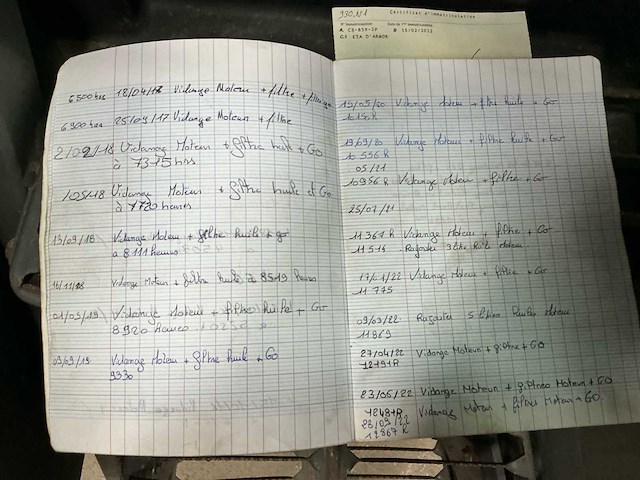 930.N1 Certificat d'immatriculation
ETA D'ARMOR
6500 hrs 18/04/17 Vidange Moteur + filtre +
6900 hrs 25/09/17 Vidange Moteur + filtre
18 Vidange Moteur + filtre huile + GO
à 7315 hrs
/05/18 Vidange Moteur + filtre huile et Go
à 7720 heures
13/09/18 Vidange Moteur + filtre huile + go
a 8111 heures
16/11/18 Vidange Moteur + filtre huile à 8519 heures
01/05/19 Vidange Moteur + filtre huile + Go
8920 heures
09/09/19 Vidange Moteur + filtre huile + GO
9330
15/05/20 Vidange Moteur + filtre huile + Go
19/09/20 Vidange Moteur + filtre huile + Go
10 556 h
05/21
10956 h Vidange Moteur + filtre + Go
25/07/21
11 367 h Vidange Moteur + filtre + Go
11 516 Rajouter 3 litre huile Moteur
17/01/22 Vidange Moteur + filtre + Go
11 775
09/03/22 Rajouter 5 litres huile Moteur
11869
27/04/22 Vidange Moteur + filtre + GO
12191h
23/05/22 Vidange Moteur + filtres Moteur + GO
Vidange Moteur + filtres Moteur + GO
12867 h